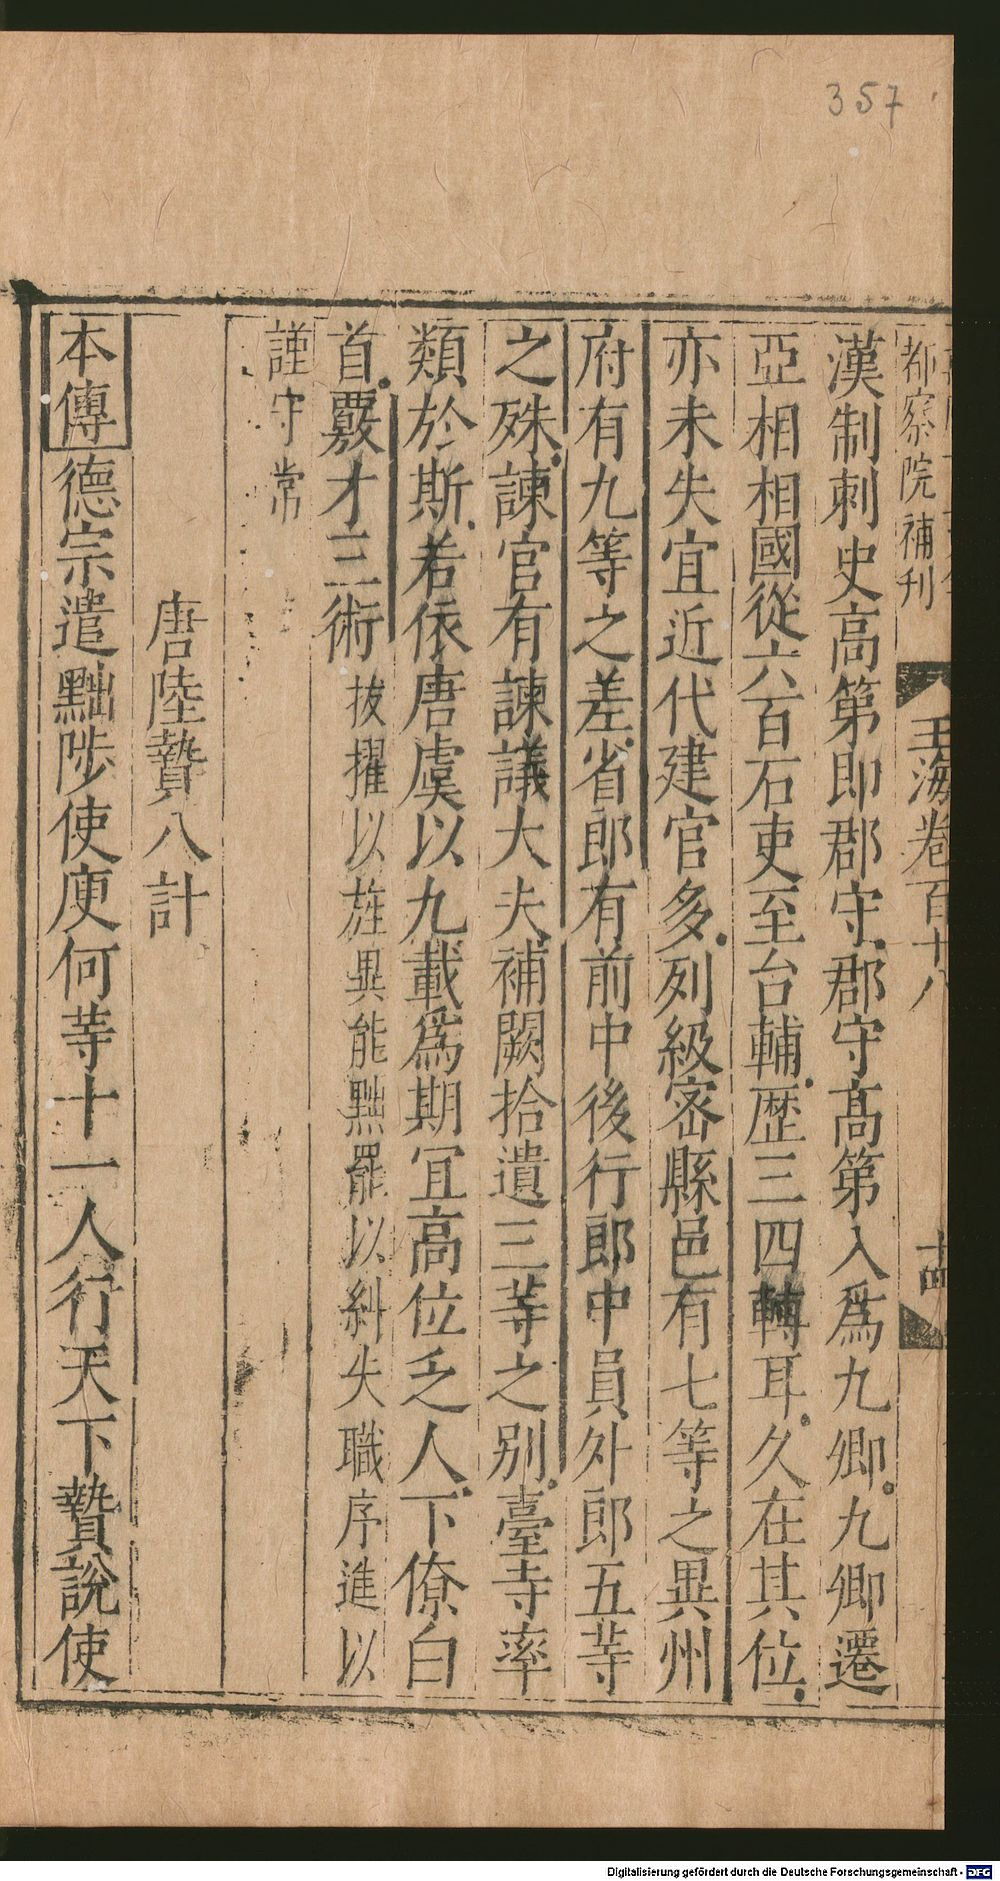 357
都察院補刊 玉海卷百十八 十四
漢制刺史高第即郡守郡守高第入爲九卿九卿遷
亞相相國從六百石吏至台輔歷三四轉耳久在其位
亦未失宜近代建官多列級密縣邑有七等之異州
府有九等之差省郎有前中後行郎中員外郎五等
之殊諫官有諫議大夫補闕拾遺三等之别臺寺率
類於斯若依唐虞以九載爲期宜高位乏人下僚白
首覈才三術拔擢以旌異能黜罷以糾失職序進以
謹守常
唐陸贄八計
本傳德宗遣黜陟使庾何等十一人行天下贄說使
Digitalisierung gefördert durch die Deutsche Forschungsgemeinschaft - DFG